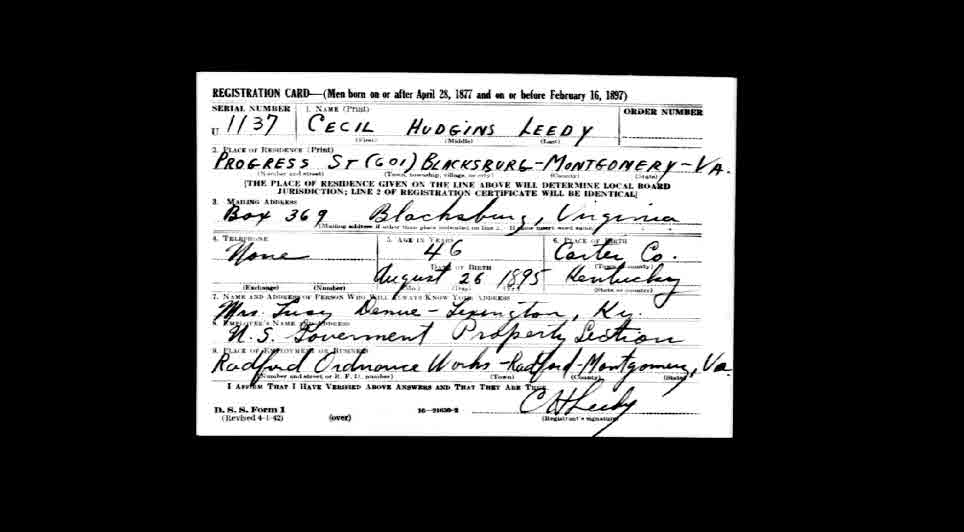 REGISTRATION CARD—(Men born on or after April 28, 1877 and on or before February 16, 1897)
SERIAL NUMBER 1. NAME (Print) ORDER NUMBER
U 1137 CECIL HUDGINS LEEDY
(First) (Middle) (Last)
2. PLACE OF RESIDENCE (Print)
PROGRESS ST (601) BLACKSBURG-MONTGOMERY-VA.
(Number and street) (Town, township, village, or city) (County) (State)
[THE PLACE OF RESIDENCE GIVEN ON THE LINE ABOVE WILL DETERMINE LOCAL BOARD
JURISDICTION; LINE 2 OF REGISTRATION CERTIFICATE WILL BE IDENTICAL]
3. MAILING ADDRESS
Box 369 Blacksburg, Virginia
[Mailing address if other than place indicated on line 2. If same insert word same]
4. TELEPHONE 5. AGE IN YEARS 6. PLACE OF BIRTH
None 46 Carter Co.
DATE OF BIRTH (Town or county)
August 26 1895 Kentucky
(Exchange) (Number) (Mo.) (Day) (Yr.) (State or country)
7. NAME AND ADDRESS OF PERSON WHO WILL ALWAYS KNOW YOUR ADDRESS
Mrs. Lucy - Lexington, Ky.
8. EMPLOYER'S NAME AND ADDRESS
U.S. Goverment Property Section
9. PLACE OF EMPLOYMENT OR BUSINESS
Radford Ordnance Works - Radford - Montgomery, Va.
(Number and street or R. F. D. number) (Town) (County) (State)
I AFFIRM THAT I HAVE VERIFIED ABOVE ANSWERS AND THAT THEY ARE TRUE.
C H Leedy
D. S. S. Form 1 16—21630-2
(Revised 4-1-42) (over) (Registrant's signature)